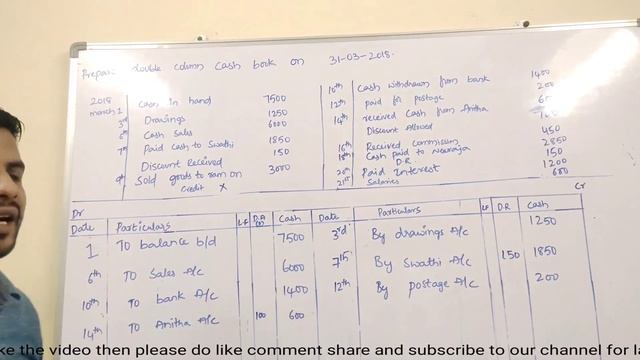 Prepare double column cash book on 31-03-2018.
2018
march 1 Cash in hand 7500
3rd Drawings 1250
6th Cash sales 6000
7th Paid cash to Swathi 1850
Discount Received 150
9th Sold goods to ram on 3000
credit X
10th Cash withdrawn from bank 1400
12th paid for postage 200
14th received Cash from Anitha
Discount Allowed
16th Received commission 450
18th Cash paid to Neeraja 2850
D.R 150
20th Paid Interest 1200
21st Salaries 600
Dr Cr
Date Particulars L.F D.A Cash Date Particulars L.F D.R Cash
1 To balance b/d 7500 3rd By drawings A/c 1250
6th To Sales A/c 6000 7th By Swathi A/c 150 1850
10th To bank A/c 1400 12th By postage A/c 200
14th To Anitha A/c 100 600
ke the video then please do like comment share and subscribe to our channel for